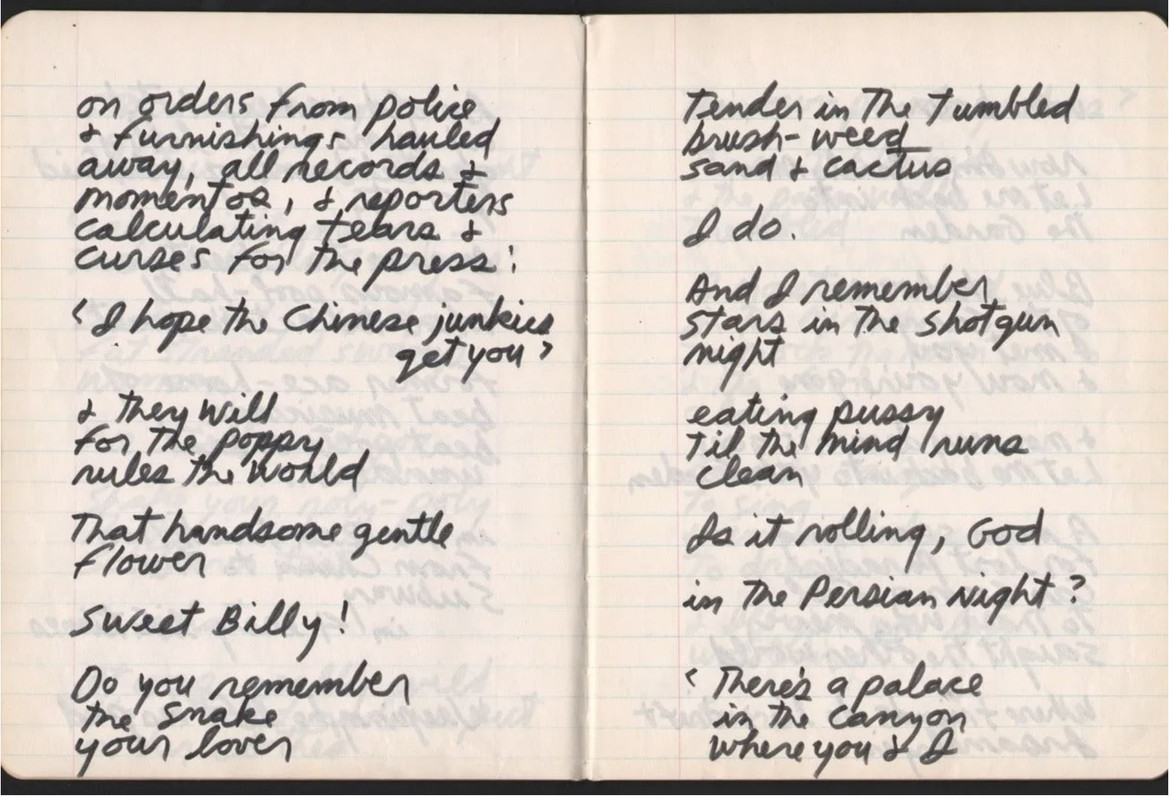 on orders from police
& furnishings hauled
away, all records &
momentos, & reporters
calculating tears &
curses for the press:
‹ I hope the Chinese junkies
get you ›
& they will
for the poppy
rules the world
That handsome gentle
flower
Sweet Billy!
Do you remember
the snake
your lover
tender in the tumbled
brush-weed
sand & cactus
I do.
And I remember
stars in the shotgun
night
eating pussy
til the mind runs
clean
Is it rolling, God
in the Persian Night?
‹ There's a palace
in the canyon
where you & I